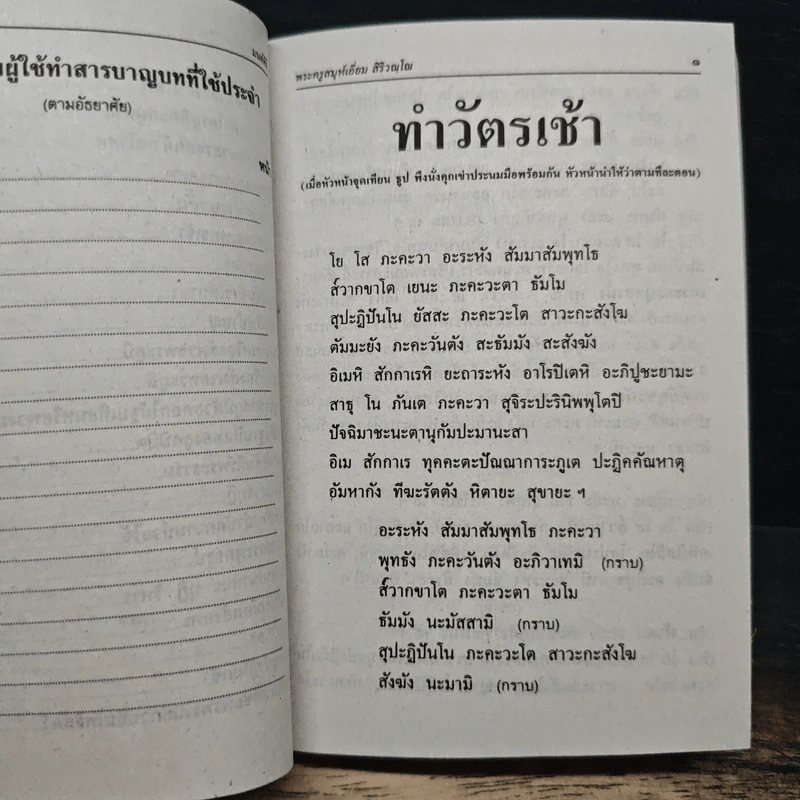 ผู้ใช้ทำสารบาญบทที่ใช้ประจำ
(ตามอัธยาศัย)
หน้า
พระครูสมุห์เอี่ยม สิริวณฺโณ
๑
ทำวัตรเช้า
(เมื่อหัวหน้าจุดเทียน ธูป พึงนั่งคุกเข่าประนมมือพร้อมกัน หัวหน้านำให้ว่าตามทีละตอน)
โย โส ภะคะวา อะระหัง สัมมาสัมพุทโธ
ส๎วากขาโต เยนะ ภะคะวะตา ธัมโม
สุปะฏิปันโน ยัสสะ ภะคะวะโต สาวะกะสังโฆ
ตัมมะยัง ภะคะวันตัง สะธัมมัง สะสังฆัง
อิเมหิ สักกาเรหิ ยะถาระหัง อาโรปิเตหิ อะภิปูชะยามะ
สาธุ โน ภันเต ภะคะวา สุจิระปะรินิพพุโตปิ
ปัจฉิมาชะนะตานุกัมปะมานะสา
อิเม สักกาเร ทุคคะตะปัณณาการะภูเต ปะฏิคคัณหาตุ
อัมหากัง ทีฆะรัตตัง หิตายะ สุขายะ ฯ
อะระหัง สัมมาสัมพุทโธ ภะคะวา
พุทธัง ภะคะวันตัง อะภิวาเทมิ (กราบ)
ส๎วากขาโต ภะคะวะตา ธัมโม
ธัมมัง นะมัสสามิ (กราบ)
สุปะฏิปันโน ภะคะวะโต สาวะกะสังโฆ
สังฆัง นะมามิ (กราบ)